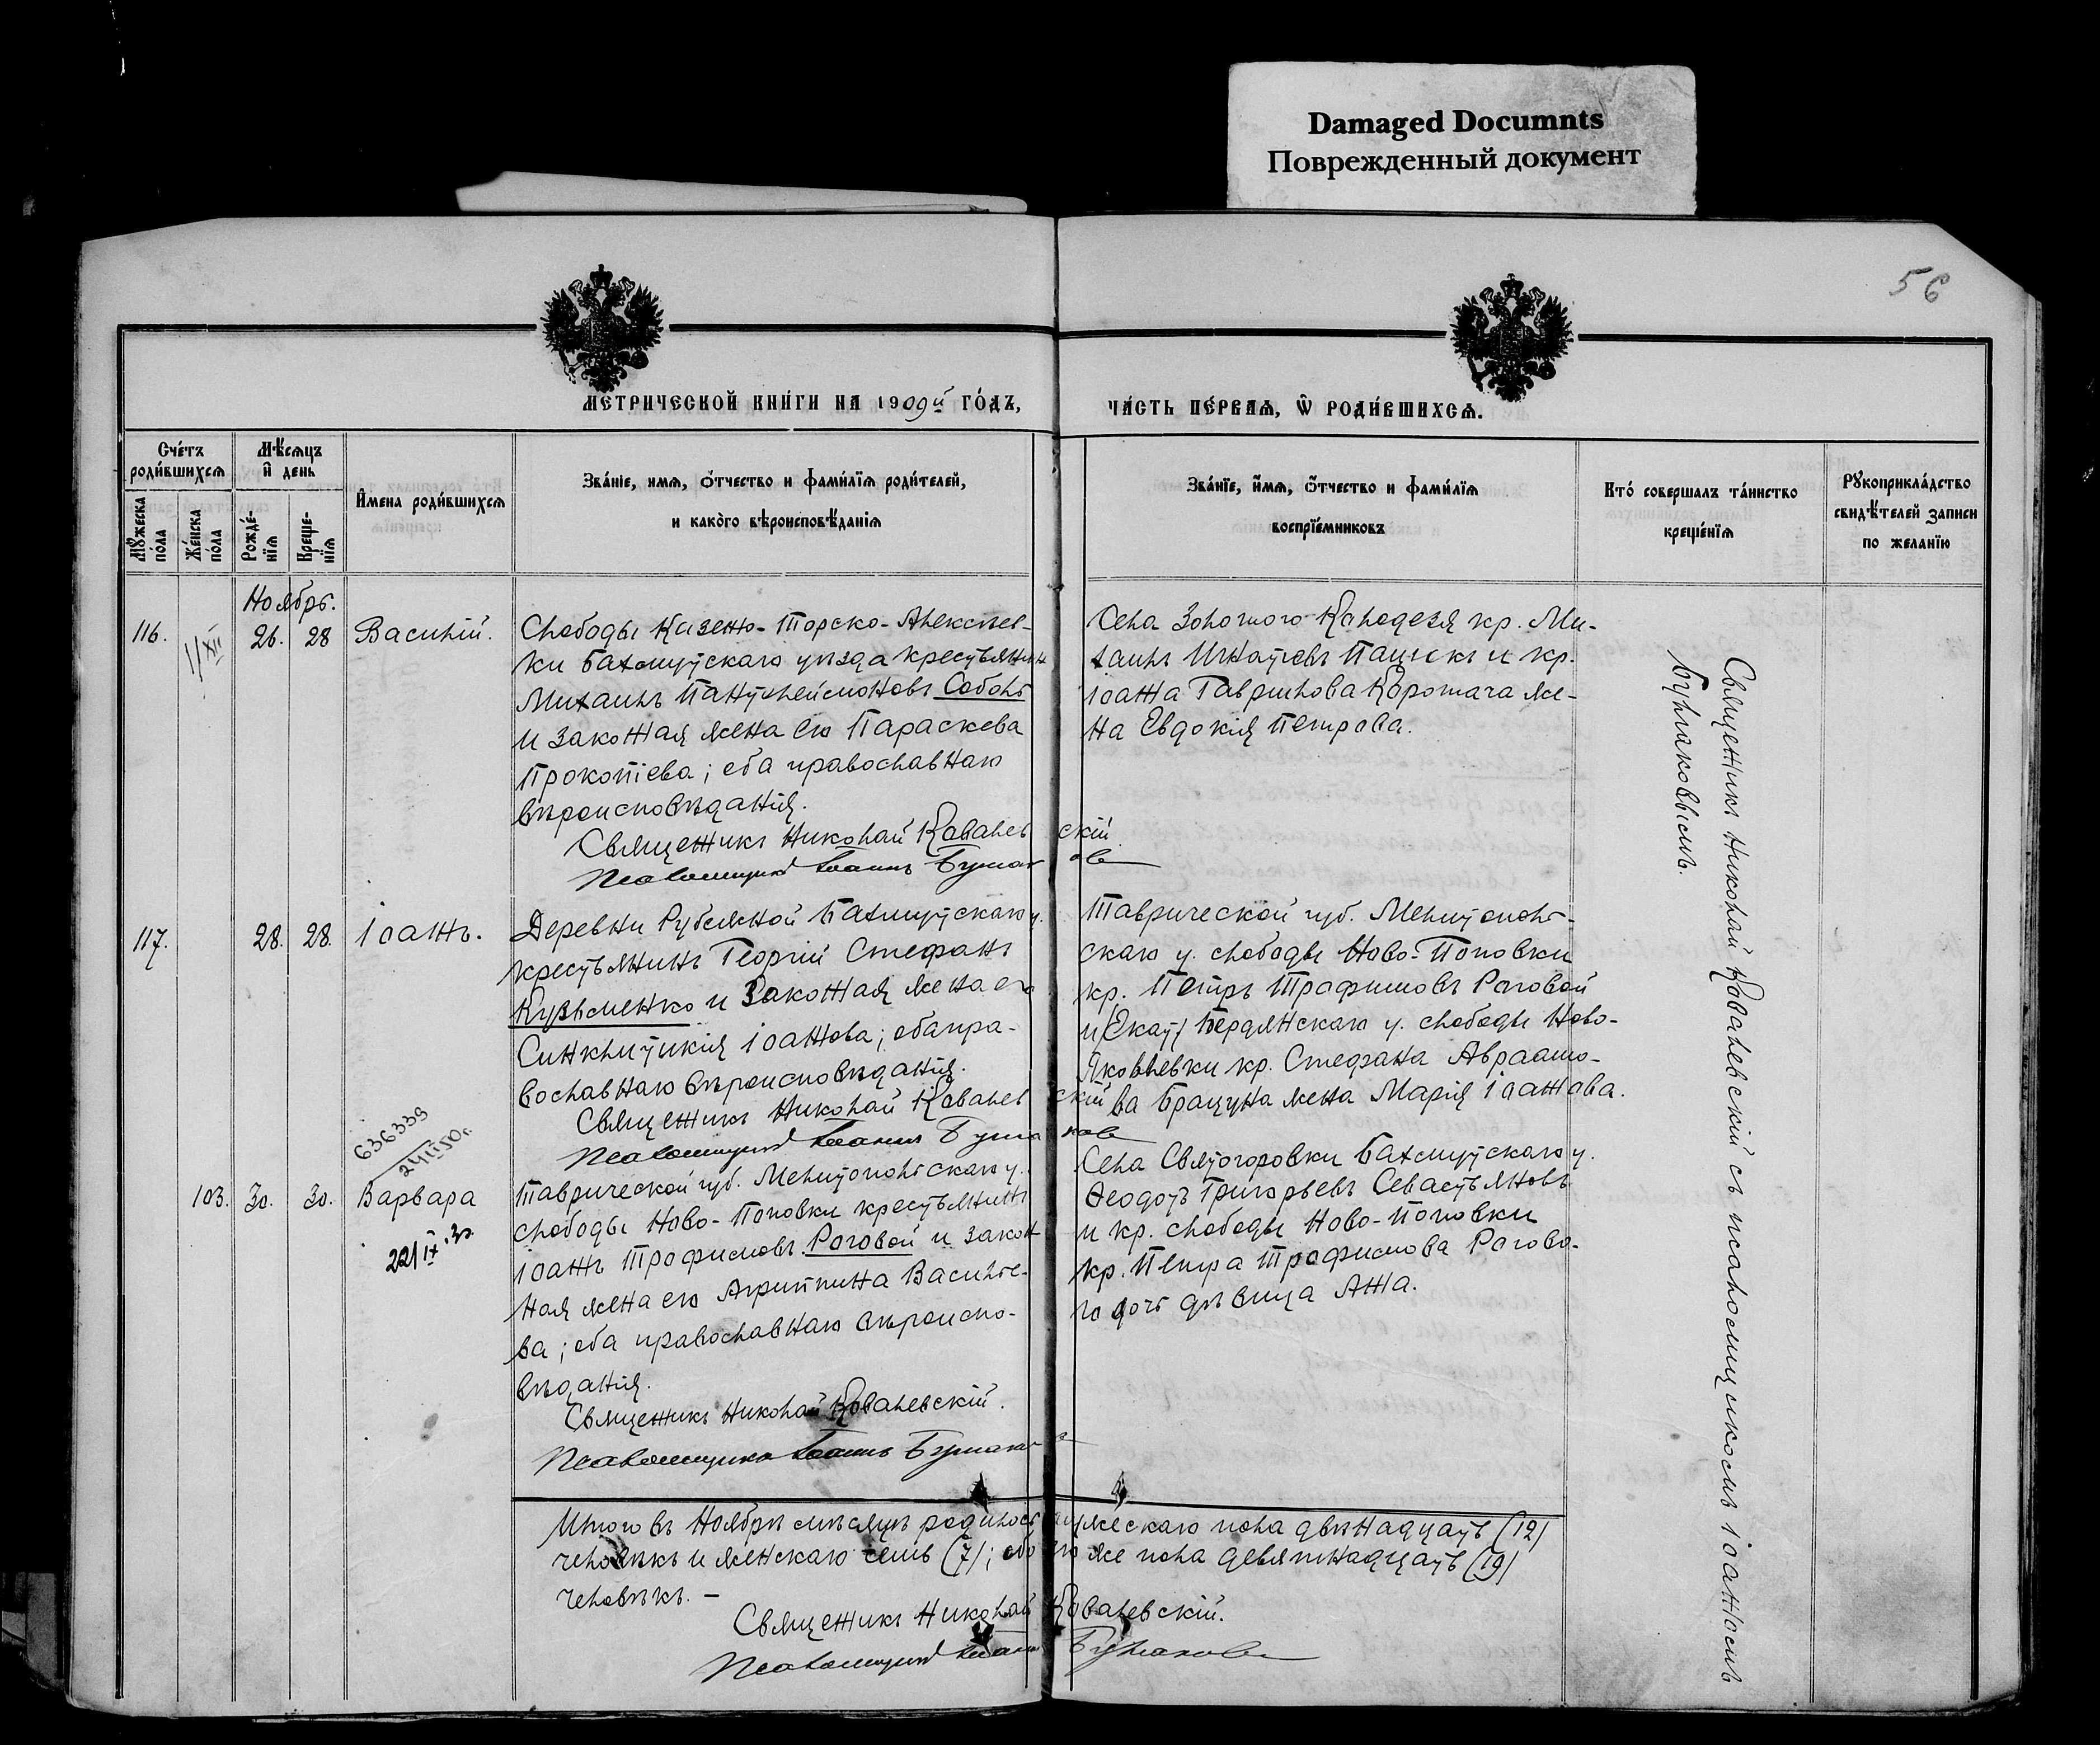 Damaged Documnts
Поврежденный документ
56
МЕТРИЧЕСКОЙ КНИГИ НА 1909й ГОДЪ,
ЧАСТЬ ПЕРВАЯ, Ѡ РОДИВШИХСЯ.
Счетъ родившихся
Мѣсяцъ и день
Имена родившихся
Званіе, имя, отчество и фамилія родителей,
и какого вѣроисповѣданія
Званіе, имя, отчество и фамилія
воспріемниковъ
Кто совершалъ таинство
крещенія
Рукоприкладство
свидѣтелей записи
по желанію
Мужеска пола
Женска пола
Рожденія
Крещенія
Ноябрь.
116.
1/XII
26.
28
Василій.
Слободы Казенно-Торско-Алексѣев-
ки Бахмутскаго уѣзда крестьянинъ
Михаилъ Пантелеймоновъ Соболь
и законная жена его Параскева
Прокопіева; оба православнаго
вѣроисповѣданія.
Священникъ Николай Ковалевскій
Псаломщикъ Іоаннъ Булгаковъ
Села Золотого Колодезя кр. Ми-
хаилъ Игнатіевъ и кр.
Іоанна Гаврилова Коротача же-
на Евдокія Петрова.
117.
28.
28.
Іоаннъ.
Деревни Рубежной Бахмутскаго у.
крестьянинъ Георгій Стефанъ
Кузьменко и законная жена его
Синклитикія Іоаннова; оба пра-
вославнаго вѣроисповѣданія.
Священникъ Николай Ковалевскій
Псаломщикъ Іоаннъ Булгаковъ
Таврической губ. Мелитополь-
скаго у. слободы Ново-Поповки
кр. Петръ Трофимовъ Роговой
и /Екат/ Бердянскаго у. слободы Ново-
Яковлевки кр. Стефана Авраамо-
ва жена Марія Іоаннова.
636339
24/II 50г.
103.
30.
30.
Варвара
22/IX
Таврической губ. Мелитопольскаго у.
слободы Ново-Поповки крестьянинъ
Іоаннъ Трофимовъ Роговой и закон-
ная жена его Агриппина Василье-
ва; оба православнаго вѣроиспо-
вѣданія.
Священникъ Николай Ковалевскій.
Псаломщикъ Іоаннъ Булгаковъ
Села Святогоровки Бахмутскаго у.
Ѳеодотъ Григорьевъ Севастьяновъ
и кр. слободы Ново-Поповки
кр. Петра Трофимова Рогово-
го дочь дѣвица Анна.
Священникъ Николай Ковалевскій съ псаломщикомъ Іоанномъ
Булгаковымъ.
Итого въ Ноябрѣ мѣсяцѣ родилось мужескаго пола двѣнадцать (12)
человѣкъ и женскаго семь (7); обоего же пола девятнадцать (19)
человѣкъ. —
Священникъ Николай Ковалевскій.
Псаломщикъ Іоаннъ Булгаковъ